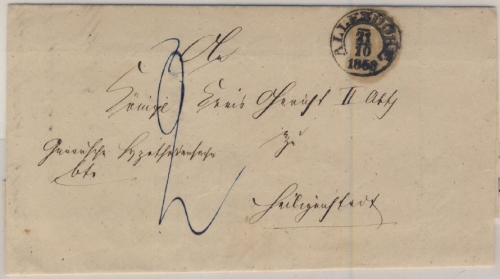 ALLENDORF
21
10
1856
An
Königl Kreis Gericht II Abth
zu
Hypothekensache
Heiligenstadt
2